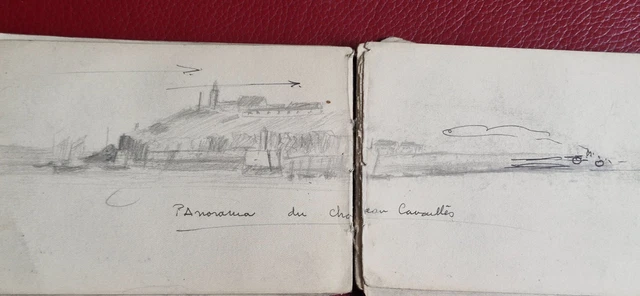 PAnorama du château Cavaillès